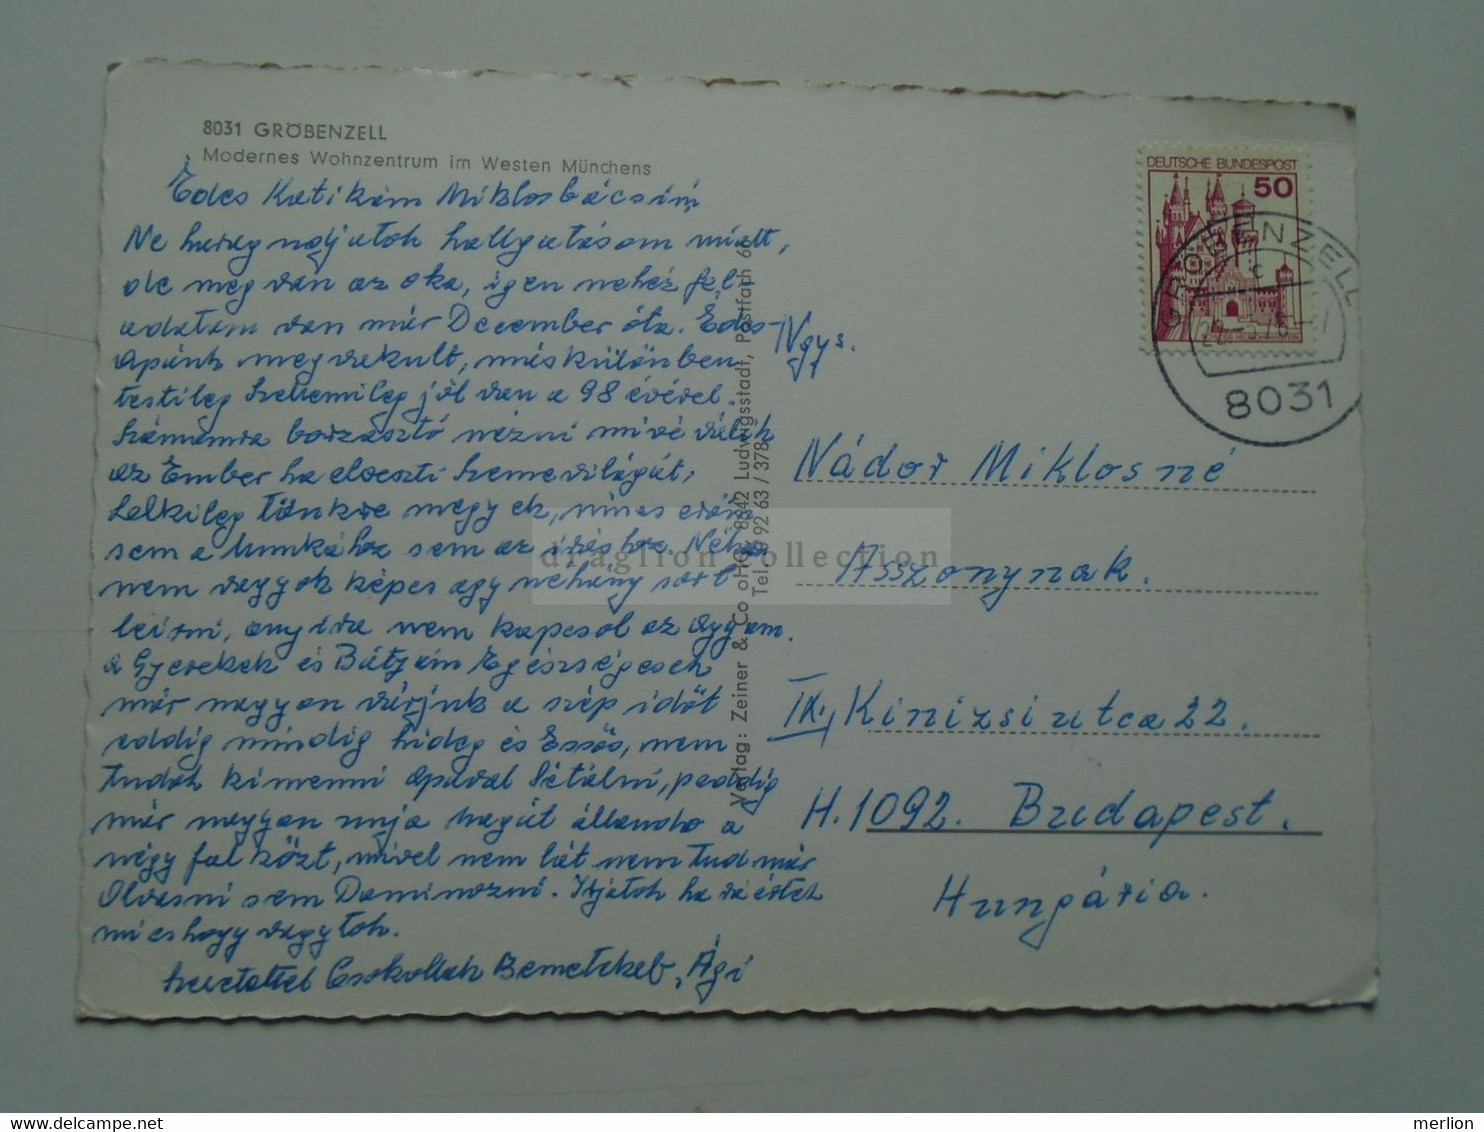 8031 GRÖBENZELL
Modernes Wohnzentrum im Westen Münchens
Édes Katikám Miklosbácsim,
Ne haragudjatok hallgatásom miatt,
de meg van az oka, igen nehéz fel
adatom van már December óta. Édes-
apánk megvakult, máskülönben
testileg szellemileg jól van a 98 évével.
Számomra borzasztó nézni mivé válik
az Ember ha elveszti Szemevilágát,
Lelkileg tönkre megyek, nincs erőm
sem a munkához sem az íráshoz. Néha
nem vagyok képes egy néhány sort
leirni, anyira nem kapcsol az agyam.
a Gyerekek és Bátyám Egészségesek
már nagyon várjuk a szép időt
eddig mindig hideg és Esős, nem
tudok kimenni apával Sétálni, peddig
már nagyon unja magát állandó a
négy fal közt, mivel nem lát nem tud már
Olvasni sem Dominozni. Irjatok ha ráértek
mi cshogy vagytok.
Szeretettel Csokollak Bemeteket, Ági
Verlag: Zeiner & Co oHG, 8842 Ludwigsstadt, Postfach 66
Tel. 0 92 63 / 378
DEUTSCHE BUNDESPOST
50
GRÖBENZELL
c
8031
Ngys.
Nádor Miklosné
Asszonynak.
IX., Kinizsi utca 22.
H. 1092. Budapest.
Hungária.
dragfron collection
delcampe.net
merlion